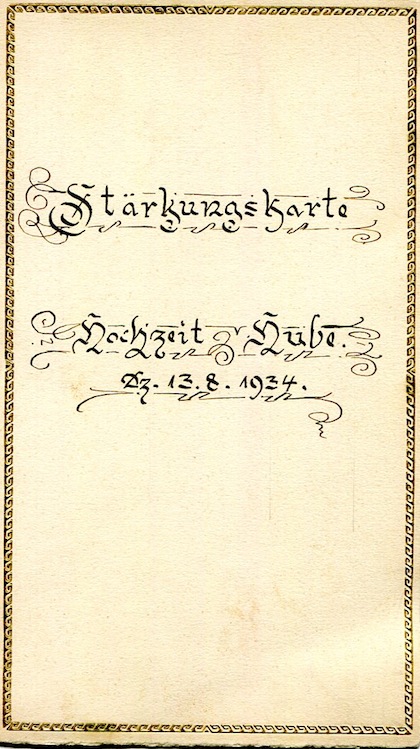 Stärkungskarte
Hochzeit v. Hube.
Dz. 13. 8. 1934.